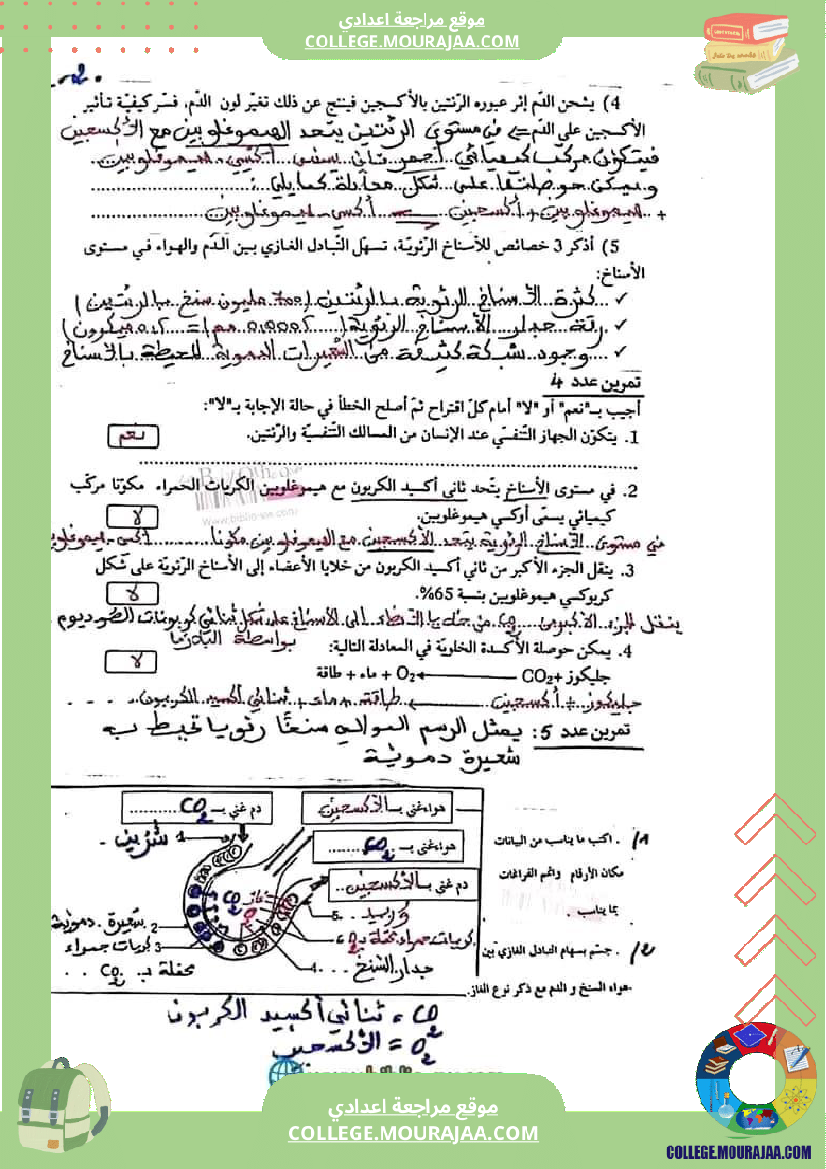 موقع مراجعة اعدادي
COLLEGE.MOURAJAA.COM
4) يشحن الدّم إثر عبوره الرّئتين بالأكسجين فينتج عن ذلك تغيّر لون الدّم، فسّر كيفيّة تأثير
الأكسجين على الدّم. في مستوى الرئتين يتحد الهيموغلوبين مع الأكسجين
فيتكوّن مركب كيميائي أحمر قاني يسمى أكسي-هيموغلوبين
ويمكن حوصلتها على شكل معادلة كما يلي:
هيموغلوبين + أكسجين أكسي-هيموغلوبين
5) أذكر 3 خصائص للأسناخ الرّئويّة، تسهّل التّبادل الغازي بين الدّم والهواء في مستوى
الأسناخ:
✓ كثرة الأسناخ الرئوية بالرئتين (700 مليون سنخ بالرئتين)
✓ رقة جدار الأسناخ الرئوية
✓ وجود شبكة كثيفة من الشعيرات الدموية المحيطة بالأسناخ
تمرين عدد 4
أجيب بـ"نعم" أو "لا" أمام كلّ اقتراح ثمّ أصلح الخطأ في حالة الإجابة بـ"لا":
1. يتكوّن الجهاز التّنفّسي عند الإنسان من المسالك التّنفسيّة والرّئتين. نعم
2. في مستوى الأسناخ يتّحد ثاني أكسيد الكربون مع هيموغلوبين الكريات الحمراء مكوّنا مركّب
كيميائي يسمّى أوكسي هيموغلوبين. لا
في مستوى الأسناخ الرئوية يتحد الأكسجين مع الهيموغلوبين مكونا أكسي-هيموغلوبين
3. ينقل الجزء الأكبر من ثاني أكسيد الكربون من خلايا الأعضاء إلى الأسناخ الرّئويّة على شكل
كربوكسي هيموغلوبين بنسبة 65%. لا
ينقل الجزء الأكبر من CO2 من خلايا الأعضاء إلى الأسناخ على شكل ثنائي كربونات الصوديوم
بواسطة البلازما
4. يمكن حوصلة الأكسدة الخلويّة في المعادلة التالية: لا
جليكوز +CO2 O2 + ماء + طاقة
جليكوز + أكسجين طاقة + ماء + ثنائي أكسيد الكربون
تمرين عدد 5: يمثل الرسم الموالي سنخًا رئويا تحيط به
شعيرة دموية
1/ . اكتب ما يناسب من البيانات
مكان الأرقام واتمم الفراغات
بما يناسب .
2/ . جسّم بسهام التبادل الغازي بين
هواء السنخ و الدم مع ذكر نوع الغاز.
هواء غني بـ الأكسجين
دم غني بـ CO2
هواء غني بـ CO2
دم غني بـ الأكسجين
1 شريين
2 شعيرة دموية
3 كريات حمراء
محملة بـ CO2
4 جدار السنخ
5 وريد
6 كريات حمراء محملة بـ O2
غاز
CO2
O2
CO2 = ثنائي أكسيد الكربون
O2 = الأكسجين
موقع مراجعة اعدادي
COLLEGE.MOURAJAA.COM
COLLEGE.MOURAJAA.COM